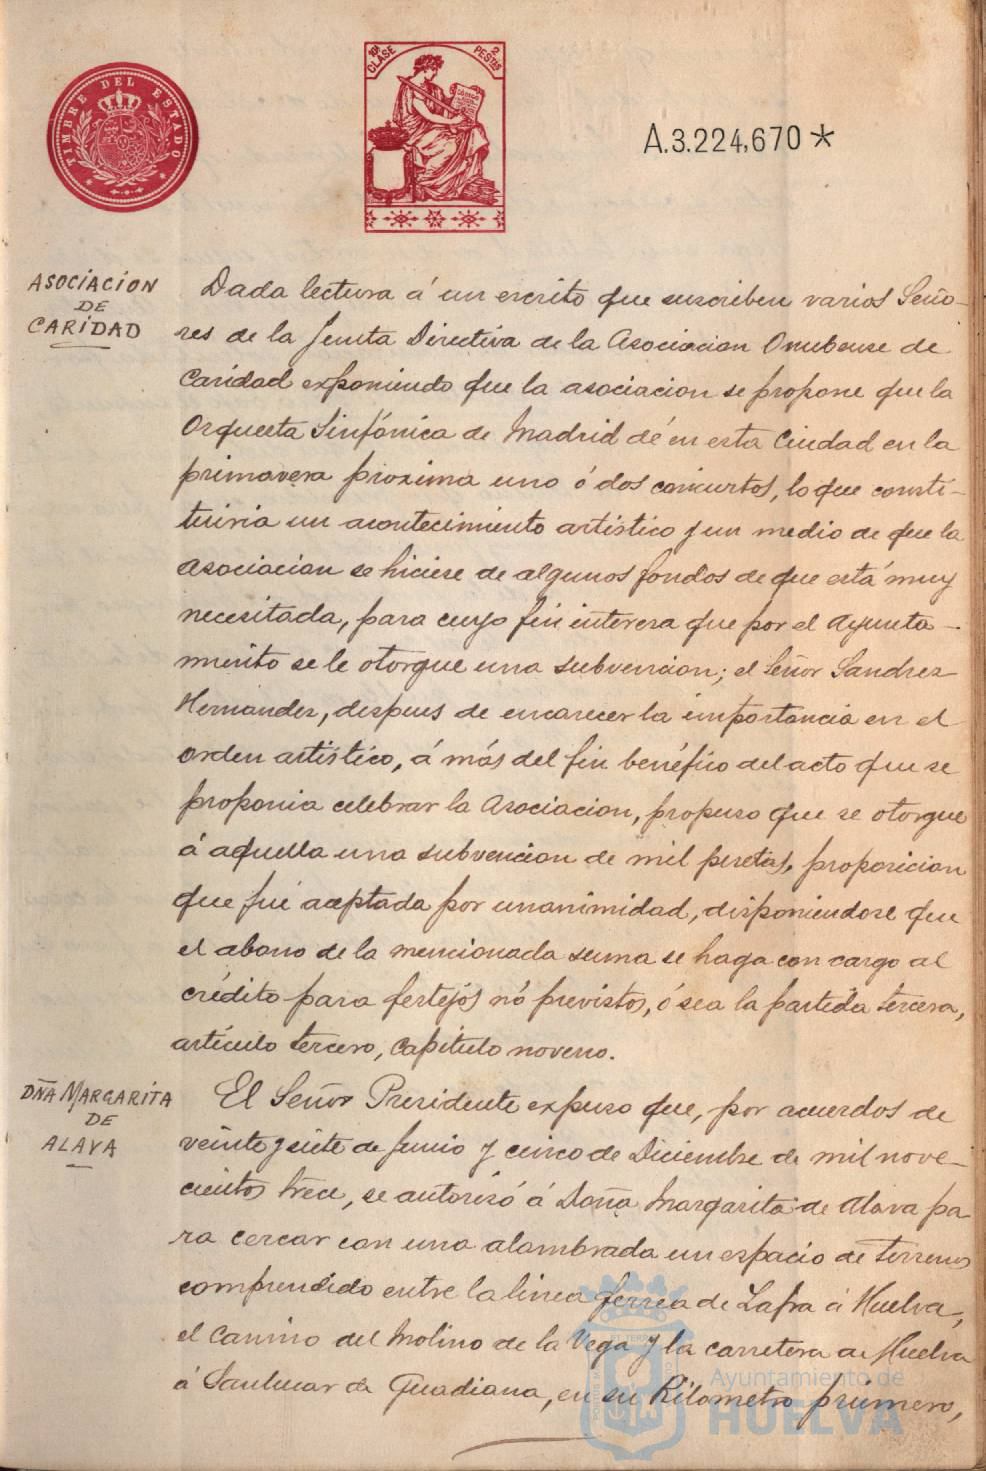 TIMBRE DEL ESTADO
10ª CLASE 2 PESTAS
A.3.224,670*
ASOCIACION
DE
CARIDAD
Dada lectura á un escrito que suscriben varios Seño-
res de la Junta Directiva de la Asociacion Onubense de
Caridad exponiendo que la asociacion se propone que la
Orquesta Sinfónica de Madrid dé en esta Ciudad en la
primavera proxima uno ó dos conciertos, lo que consti-
tuiria un acontecimiento artistico y un medio de que la
asociacion se hiciese de algunos fondos de que está muy
necesitada, para cuyo fin interesa que por el Ayunta-
miento se le otorgue una subvencion; el Señor Sanchez
Hernandez, despues de encarecer la importancia en el
orden artistico, á más del fin benéfico del acto que se
proponia celebrar la Asociacion, propuso que se otorgue
á aquella una subvencion de mil pesetas, proposicion
que fué aceptada por unanimidad, disponiendose que
el abono de la mencionada suma se haga con cargo al
crédito para festejos nó previstos, ó sea la partida tercera,
artículo tercero, Capitulo noveno.
DÑA MARGARITA
DE
ALAVA
El Señor Presidente expuso que, por acuerdos de
veinte y siete de Junio y cinco de Diciembre de mil nove-
cientos trece, se autorizó á Doña Margarita de Alava pa
ra cercar con una alambrada un espacio de terreno
comprendido entre la linea ferrea de Zafra á Huelva,
el Camino del Molino de la Vega y la carretera de Huelva
á Sanlucar de Guadiana, en su Kilometro primero,
Ayuntamiento de
HUELVA